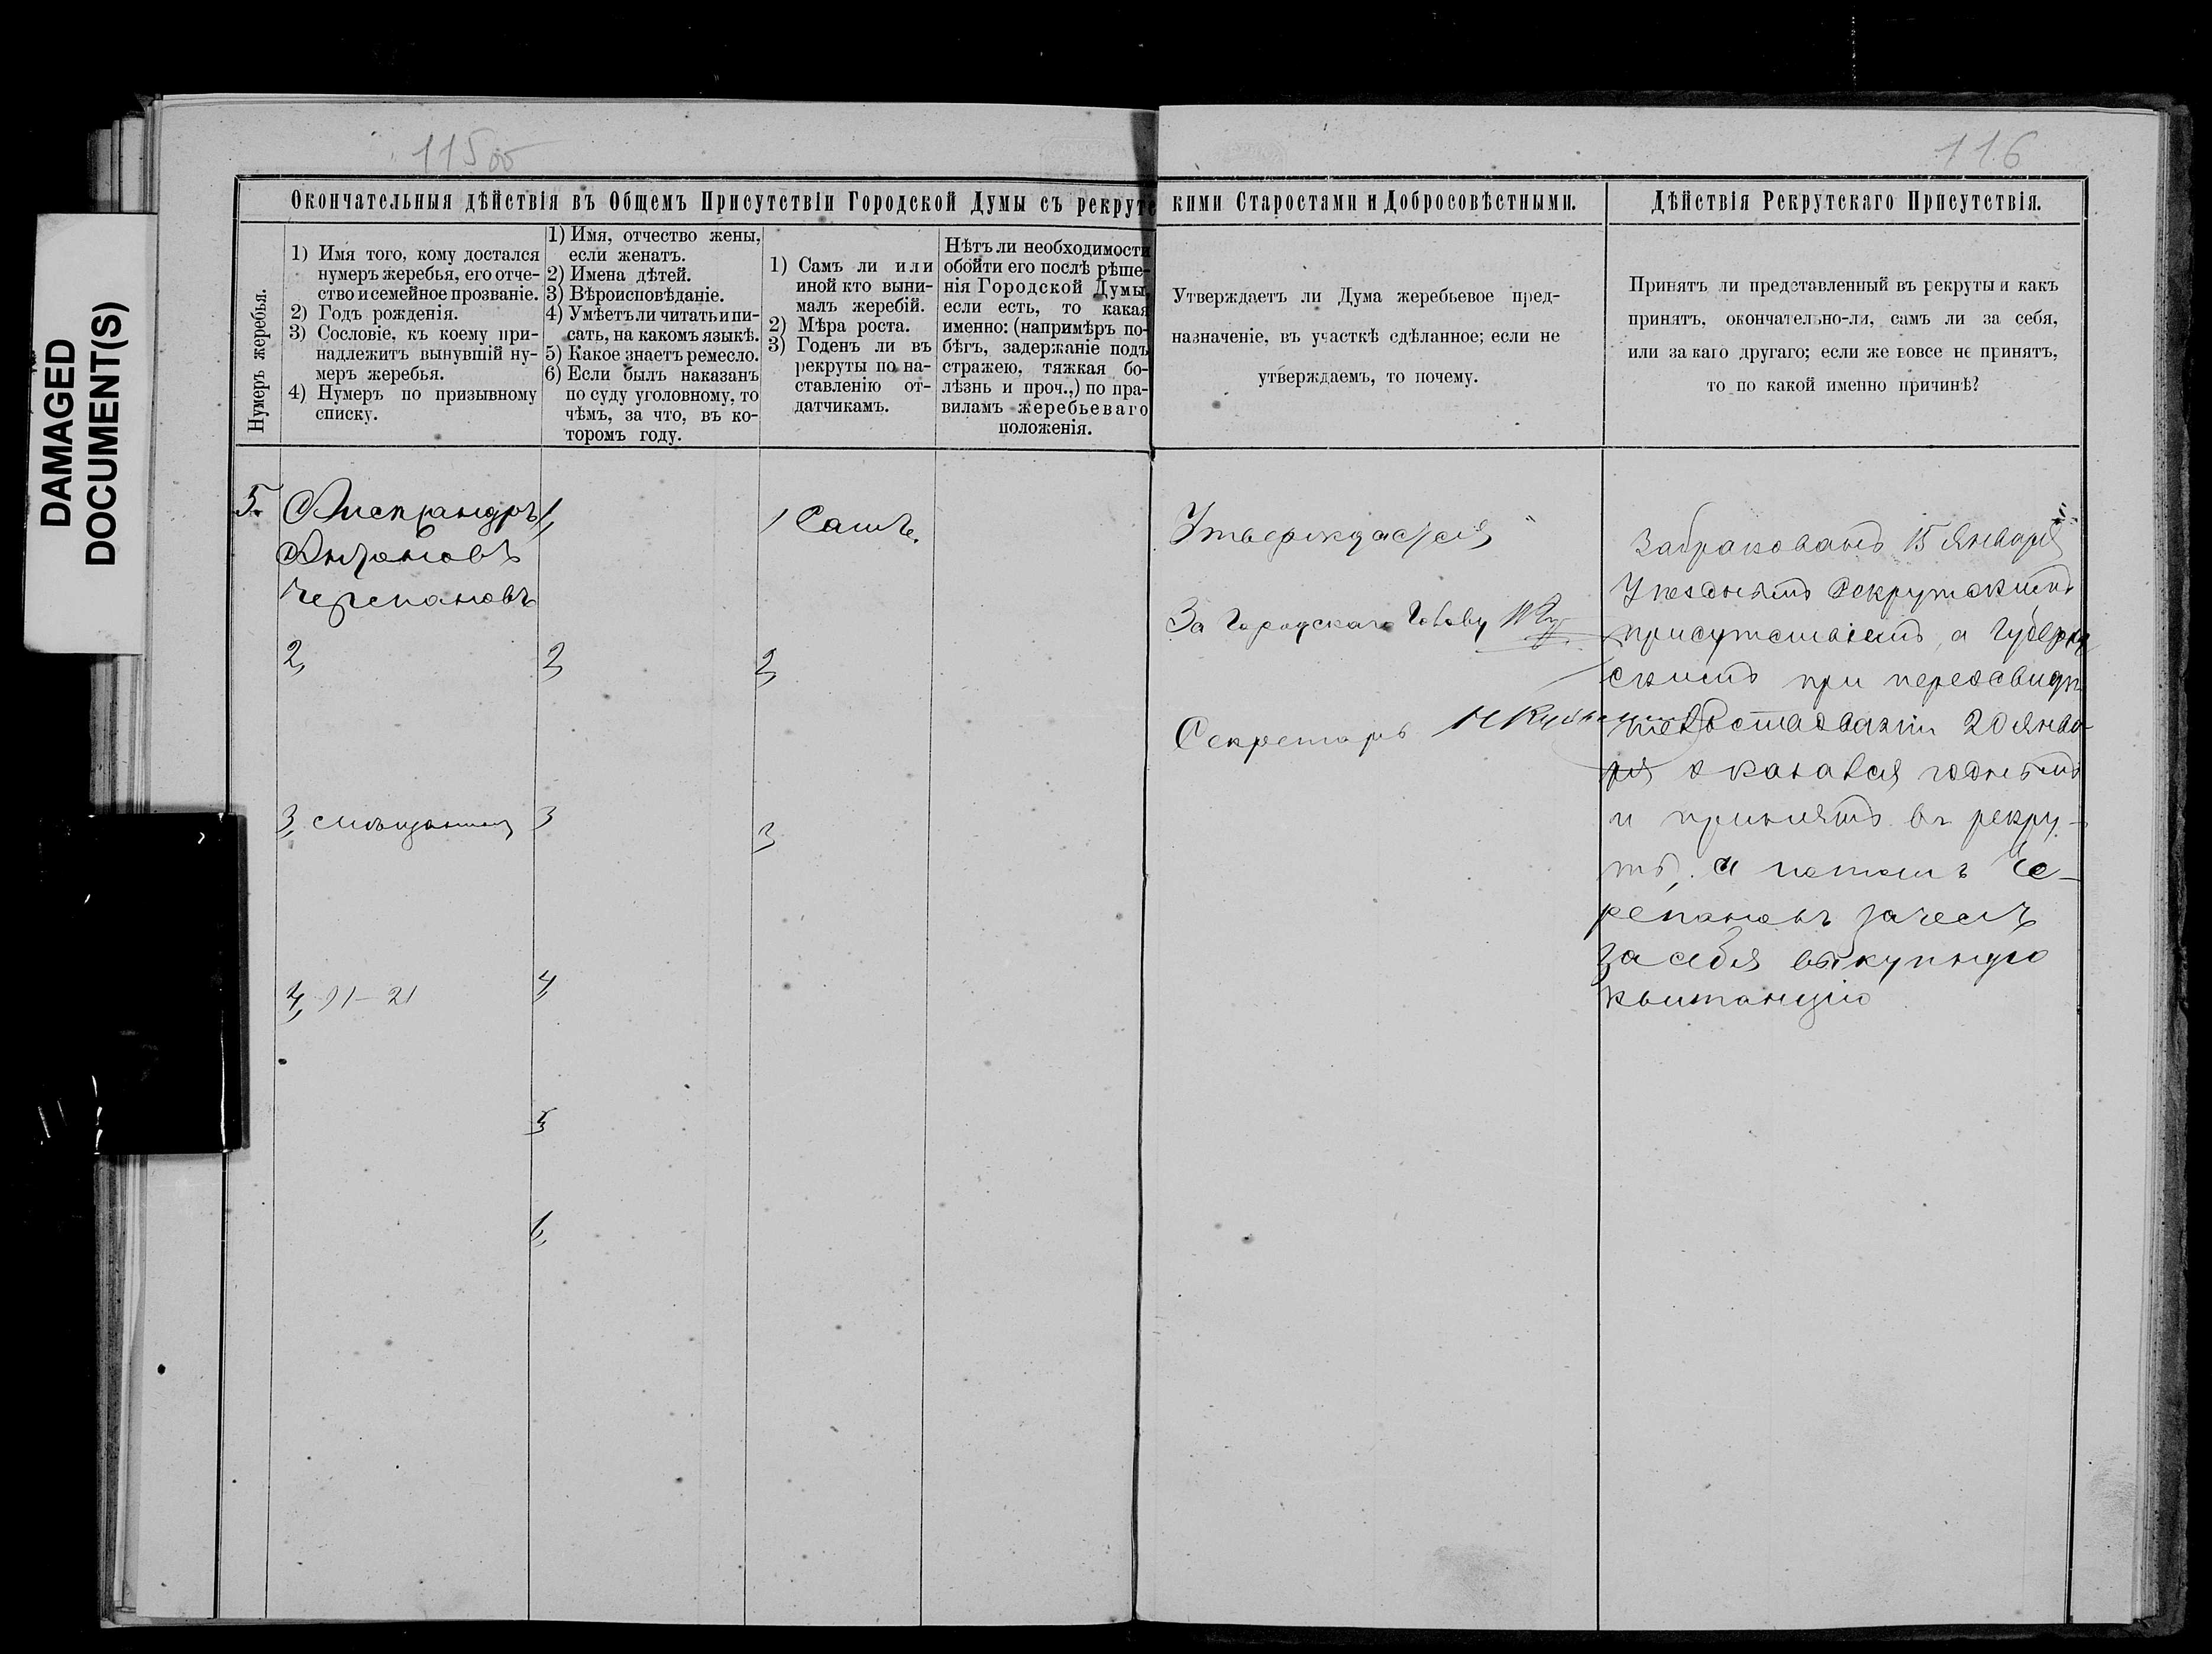 DAMAGED
DOCUMENT(S)
115об
116
Окончательныя дѣйствія въ Общемъ Присутствіи Городской Думы съ рекрутс
кими Старостами и Добросовѣстными.
Дѣйствія Рекрутскаго Присутствія.
Нумеръ жеребья.
1) Имя того, кому достался
нумеръ жеребья, его отче-
ство и семейное прозваніе.
2) Годъ рожденія.
3) Сословіе, къ коему при-
надлежитъ вынувшій ну-
меръ жеребья.
4) Нумеръ по призывному
списку.
1) Имя, отчество жены,
если женатъ.
2) Имена дѣтей.
3) Вѣроисповѣданіе.
4) Умѣетъ ли читать и пи-
сать, на какомъ языкѣ.
5) Какое знаетъ ремесло.
6) Если былъ наказанъ
по суду уголовному, то
чѣмъ, за что, въ ко-
торомъ году.
1) Самъ ли или
иной кто выни-
малъ жеребій.
2) Мѣра роста.
3) Годенъ ли въ
рекруты по на-
ставленію от-
датчикамъ.
Нѣтъ ли необходимости
обойти его послѣ рѣше-
нія Городской Думы,
если есть, то какая
именно: (напримѣръ по-
бѣгъ, задержаніе подъ
стражею, тяжкая бо-
лѣзнь и проч.,) по пра-
виламъ жеребьеваго
положенія.
Утверждаетъ ли Дума жеребьевое пред-
назначеніе, въ участкѣ сдѣланное; если не
утверждаемъ, то почему.
Принятъ ли представленный въ рекруты и какъ
принятъ, окончательно-ли, самъ ли за себя,
или за каго другаго; если же вовсе не принятъ,
то по какой именно причинѣ?
5. Александръ
Антоновъ
Черепановъ
2,
3, Смѣщанин
4, 91—21
1,
2,
3
4,
5
6,
1 Самъ.
2,
3
Утверждается
За Городскаго Голову
Секретарь
Забракованъ 15 Января
Уѣзднымъ Рекрутскимъ
присутствіемъ, а Губерн
скимъ при переосвидѣ
тельствованіи 20 Янва-
ря оказался годнымъ
и принятъ въ рекру-
ты, и потомъ Че-
репановъ зачелъ
за себя выкупную
квитанцію